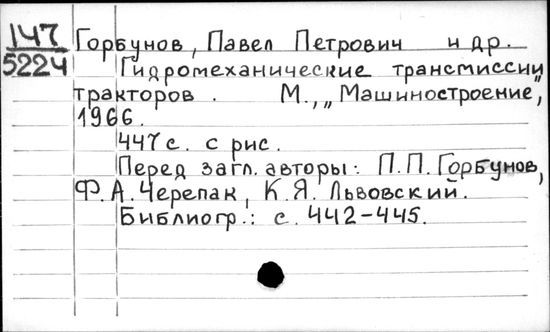 147
5224
Горбунов, Павел Петрович и др.
Гидромеханические трансмиссии
тракторов. М., „Машиностроение",
1966.
447 с. с рис.
Перед загл. авторы: П.П. Горбунов,
Ф.А. Черепак, К.Я. Львовский.
Библиогр.: с. 442-445.